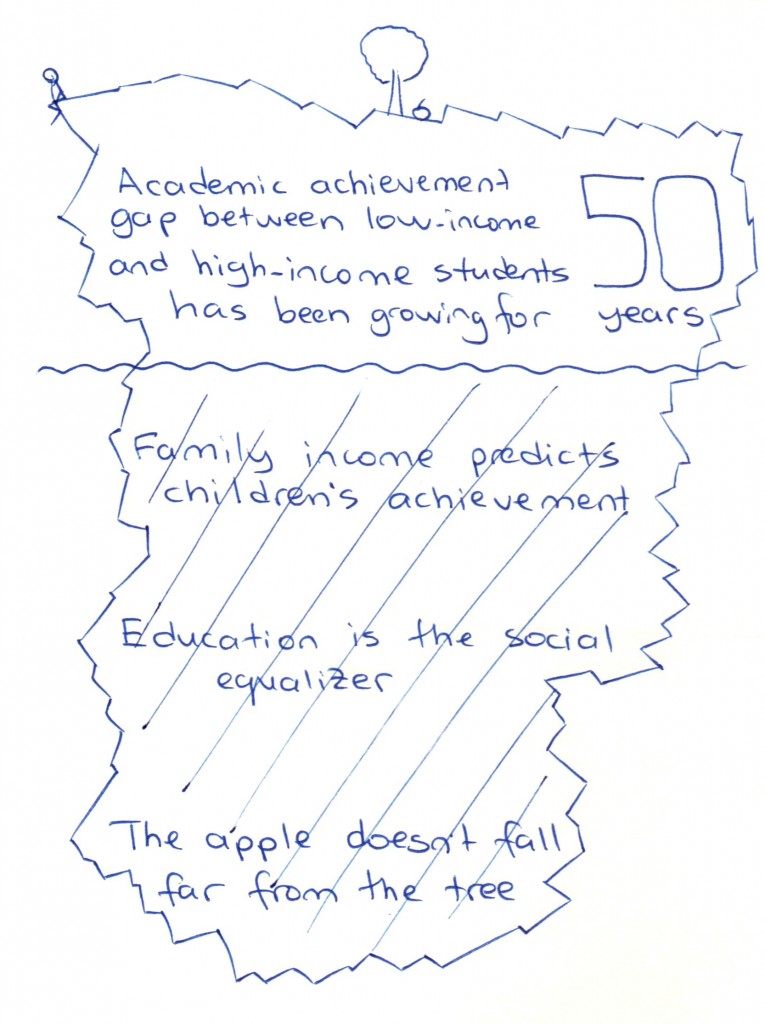 Academic achievement
gap between low-income
and high-income students
has been growing for 50 years
Family income predicts
children's achievement
Education is the social
equalizer
The apple doesn't fall
far from the tree